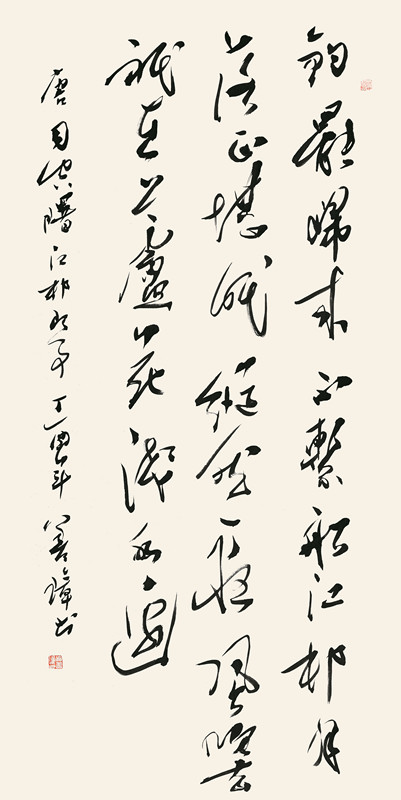 釣罷歸來不繫船江邨月
落正堪眠縱然一夜風吹去
祇在蘆花淺水邊
唐司空曙江邨即事 丁酉年 善璋书